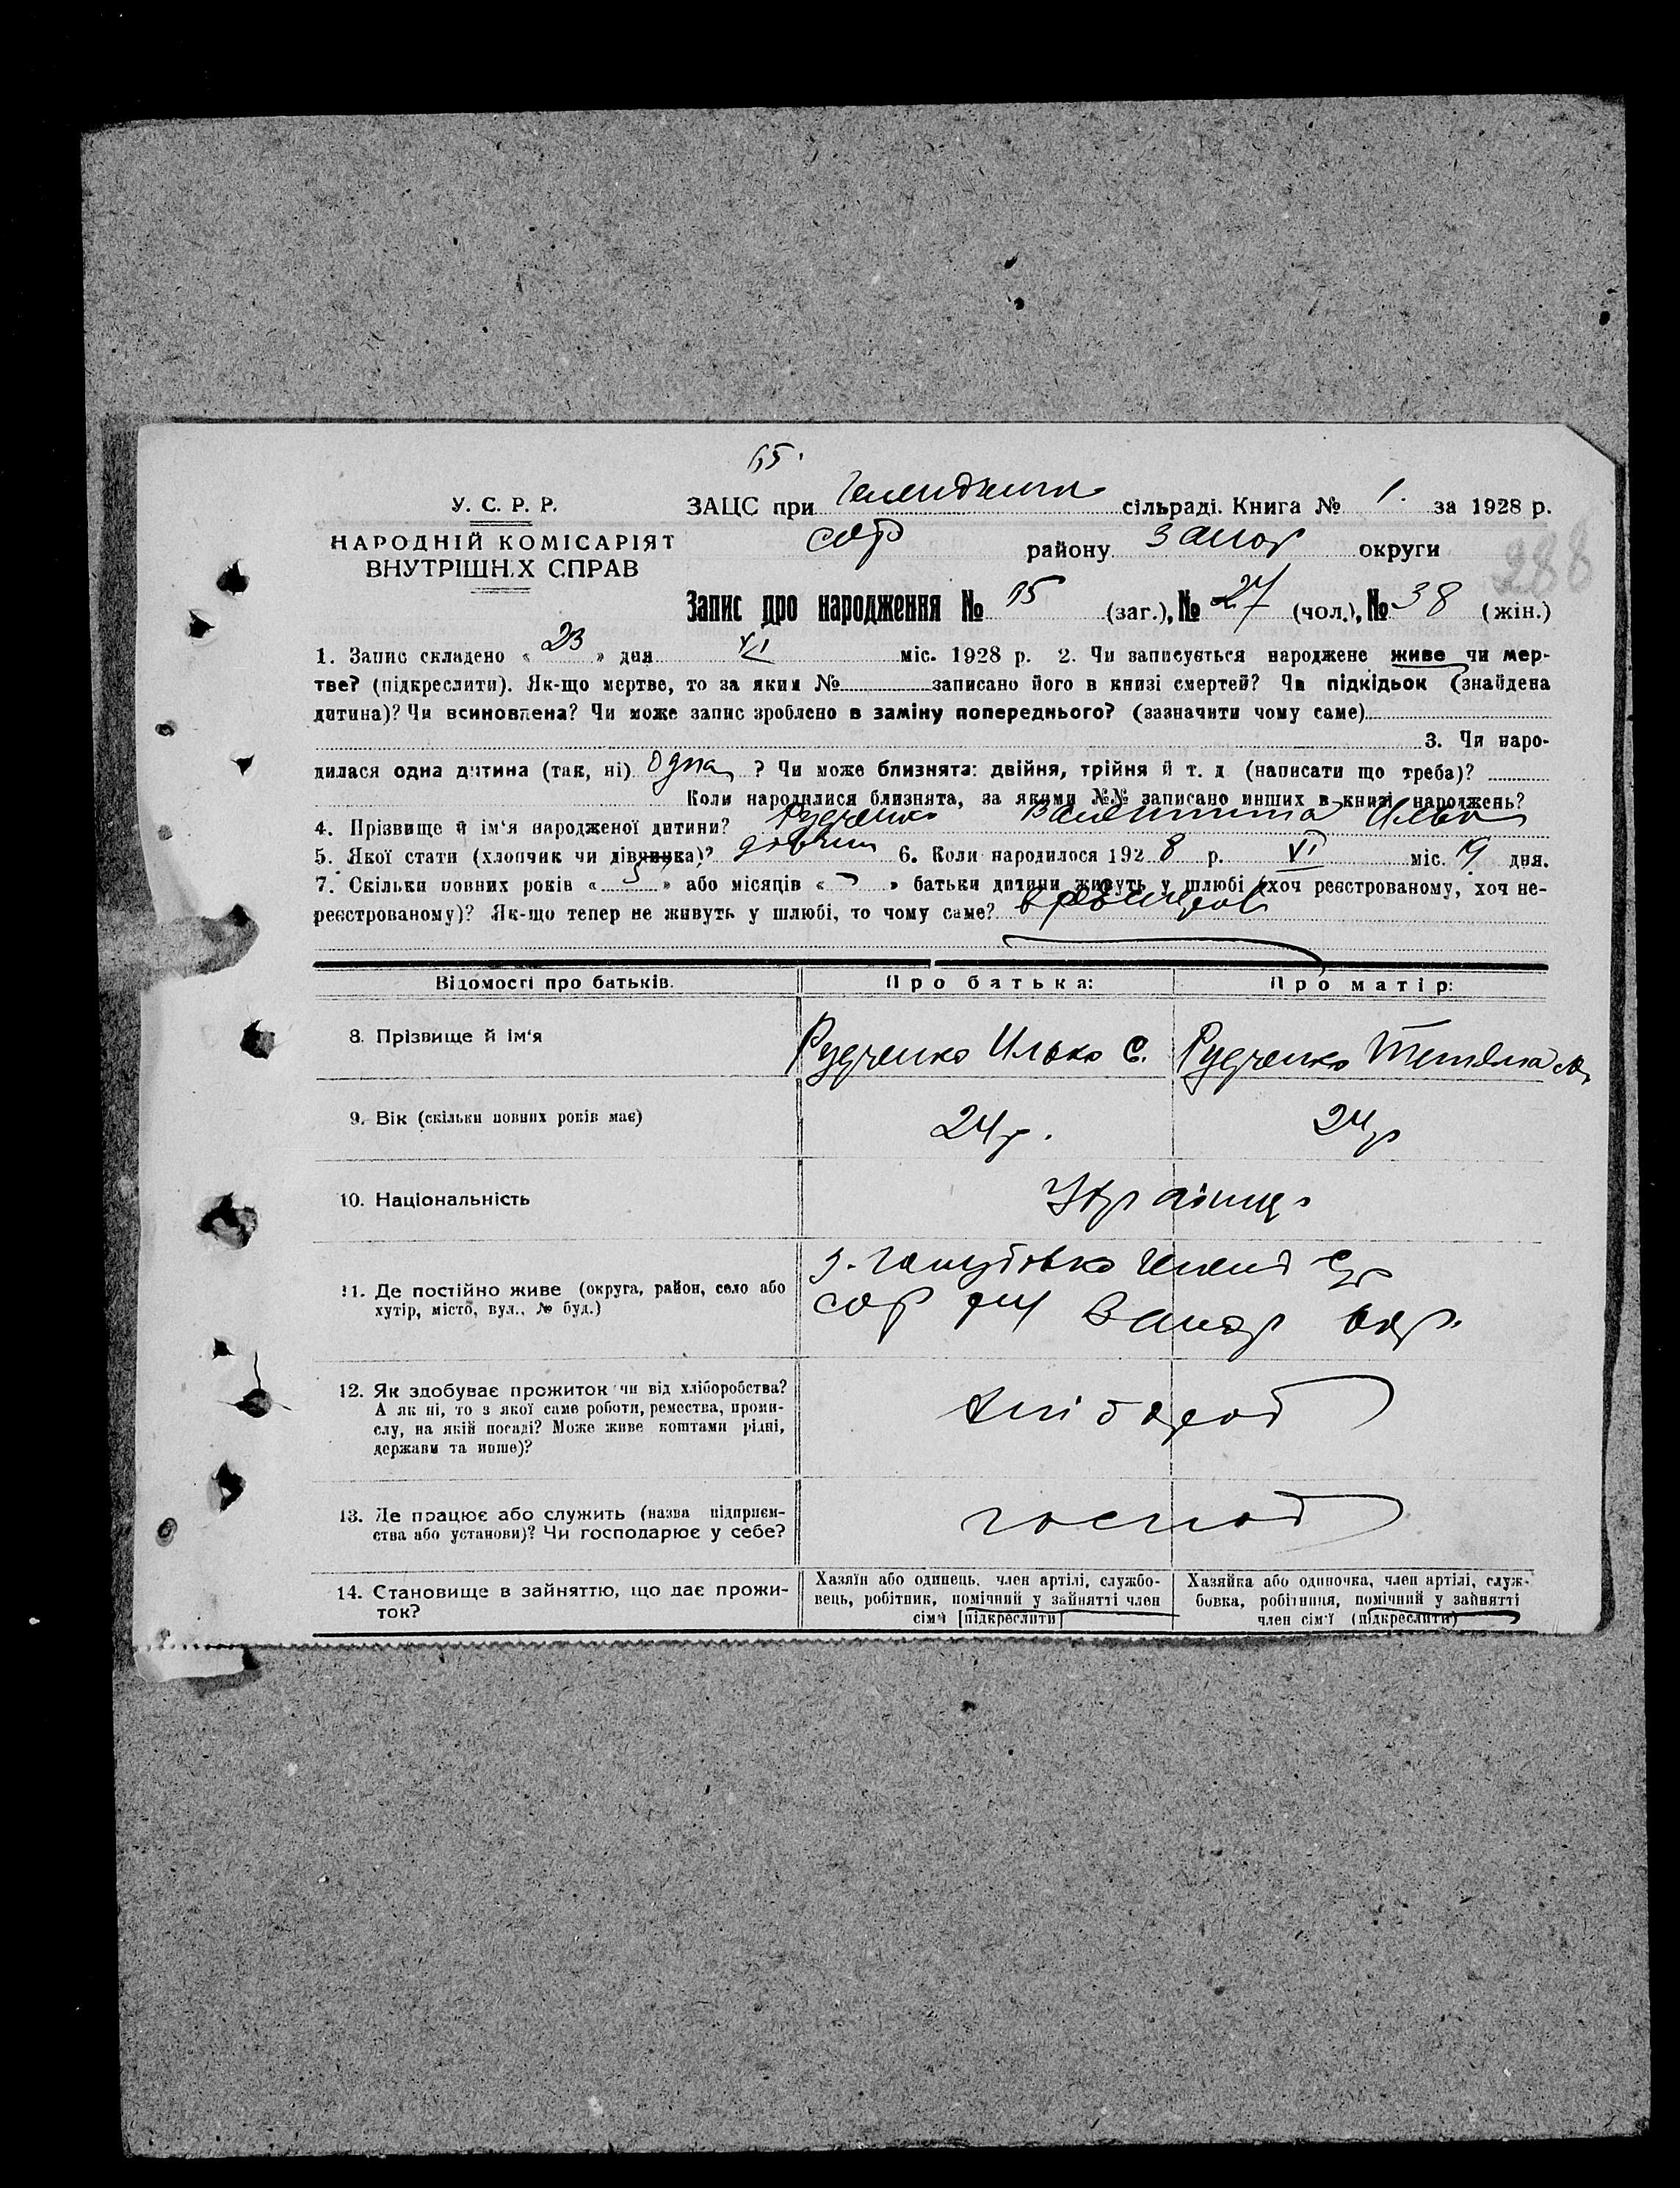 65.
У. С. Р. Р.
НАРОДНІЙ КОМІСАРІЯТ
ВНУТРІШНІХ СПРАВ
ЗАЦС при сільраді. Книга № 1. за 1928 р.
району Запор округи
288
Запис про народження № (заг.), № 27 (чол.), № 38 (жін.)
1. Запис складено « 23 » дня VI міс. 1928 р. 2. Чи записується народжене живе чи мер-
тве? (підкреслити). Як-що мертве, то за яким № записано його в книзі смертей? Чи підкідьок (знайдена
дитина)? Чи всиновлена? Чи може запис зроблено в заміну попереднього? (зазначити чому саме)
3. Чи наро-
дилася одна дитина (так, ні) Одна ? Чи може близнята: двійня, трійня й т. д (написати що треба)?
Коли народилися близнята, за якими №№ записано инших в книзі народжень?
4. Прізвище й ім'я народженої дитини? Рудченко Валентина Илько
5. Якої стати (хлопчик чи дівчинка)? дівчин 6. Коли народилося 192 8 р. VI міс. 19 дня.
7. Скільки повних років « 5 » або місяців « - » батьки дитини живуть у шлюбі (хоч реєстрованому, хоч не-
реєстрованому)? Як-що тепер не живуть у шлюбі, то чому саме?
Відомості про батьків. Про батька: Про матір:
8. Прізвище й ім'я Рудченко Илько С. Рудченко Тетяна
9. Вік (скільки повних років має) 24 р. 24 р
10. Національність Українц.
11. Де постійно живе (округа, район, село або
хутір, місто, вул., № буд.)
Запор окр.
12. Як здобуває прожиток чи від хліборобства?
А як ні, то з якої саме роботи, ремества, проми-
слу, на якій посаді? Може живе коштами рідні,
держави та инше)?
хлібороб
13. Де працює або служить (назва підприєм-
ства або установи)? Чи господарює у себе?
господ
14. Становище в зайняттю, що дає прожи-
ток?
Хазяїн або одинець, член артілі, службо-
вець, робітник, помічний у зайнятті член
сім'ї [підкреслити]
Хазяйка або одиночка, член артілі, служ-
бовка, робітниця, помічний у зайнятті
член сім'ї (підкреслити)